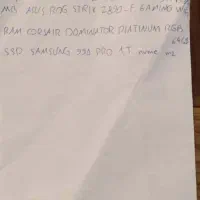 MB ASUS ROG STRIX Z890-F GAMING WIFI
RAM CORSAIR DOMINATOR PLATINUM RGB
SSD SAMSUNG 990 PRO 1T nvme m2